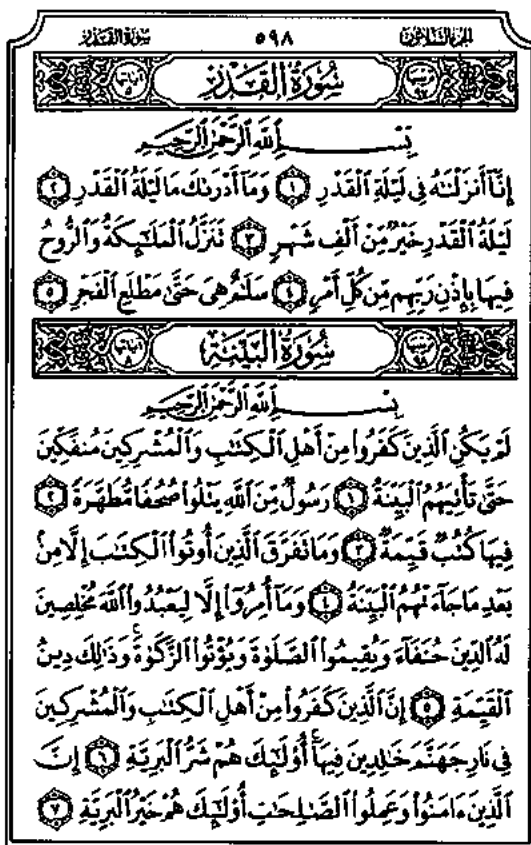 الجزء الثلاثون ٥٩٨ سورة القدر
سُورَةُ الْقَدْرِ
بِسْمِ اللَّهِ الرَّحْمَٰنِ الرَّحِيمِ
إِنَّآ أَنزَلْنَٰهُ فِى لَيْلَةِ ٱلْقَدْرِ ١ وَمَآ أَدْرَىٰكَ مَا لَيْلَةُ ٱلْقَدْرِ ٢
لَيْلَةُ ٱلْقَدْرِ خَيْرٌ مِّنْ أَلْفِ شَهْرٍ ٣ تَنَزَّلُ ٱلْمَلَٰٓئِكَةُ وَٱلرُّوحُ
فِيهَا بِإِذْنِ رَبِّهِم مِّن كُلِّ أَمْرٍ ٤ سَلَٰمٌ هِىَ حَتَّىٰ مَطْلَعِ ٱلْفَجْرِ ٥
سُورَةُ الْبَيِّنَةِ
بِسْمِ اللَّهِ الرَّحْمَٰنِ الرَّحِيمِ
لَمْ يَكُنِ ٱلَّذِينَ كَفَرُوا۟ مِنْ أَهْلِ ٱلْكِتَٰبِ وَٱلْمُشْرِكِينَ مُنفَكِّينَ
حَتَّىٰ تَأْتِيَهُمُ ٱلْبَيِّنَةُ ١ رَسُولٌ مِّنَ ٱللَّهِ يَتْلُوا۟ صُحُفًا مُّطَهَّرَةً ٢
فِيهَا كُتُبٌ قَيِّمَةٌ ٣ وَمَا تَفَرَّقَ ٱلَّذِينَ أُوتُوا۟ ٱلْكِتَٰبَ إِلَّا مِنۢ
بَعْدِ مَا جَآءَتْهُمُ ٱلْبَيِّنَةُ ٤ وَمَآ أُمِرُوٓا۟ إِلَّا لِيَعْبُدُوا۟ ٱللَّهَ مُخْلِصِينَ
لَهُ ٱلدِّينَ حُنَفَآءَ وَيُقِيمُوا۟ ٱلصَّلَوٰةَ وَيُؤْتُوا۟ ٱلزَّكَوٰةَ ۚ وَذَٰلِكَ دِينُ
ٱلْقَيِّمَةِ ٥ إِنَّ ٱلَّذِينَ كَفَرُوا۟ مِنْ أَهْلِ ٱلْكِتَٰبِ وَٱلْمُشْرِكِينَ
فِى نَارِ جَهَنَّمَ خَٰلِدِينَ فِيهَآ ۚ أُو۟لَٰٓئِكَ هُمْ شَرُّ ٱلْبَرِيَّةِ ٦ إِنَّ
ٱلَّذِينَ ءَامَنُوا۟ وَعَمِلُوا۟ ٱلصَّٰلِحَٰتِ أُو۟لَٰٓئِكَ هُمْ خَيْرُ ٱلْبَرِيَّةِ ٧